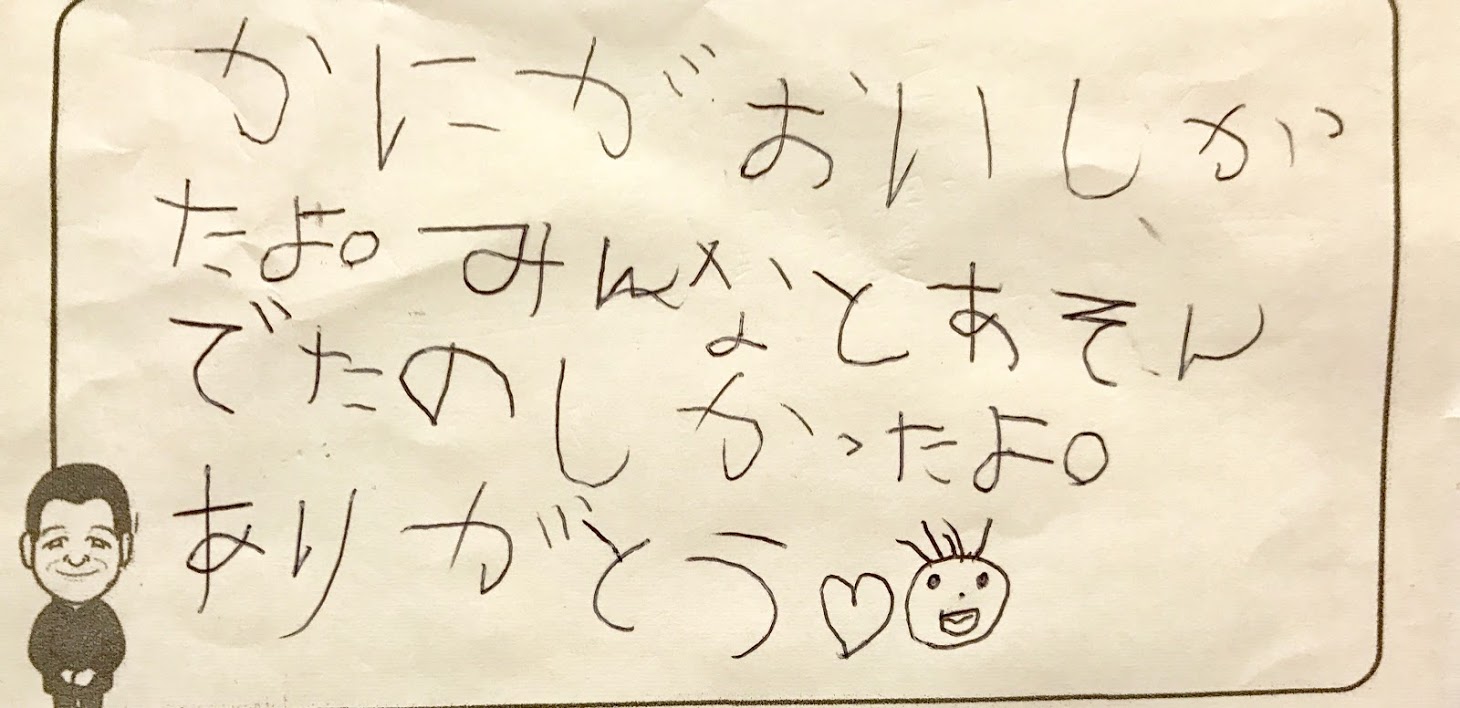 かにがおいしかっ
たよ。みんなとあそん
でたのしかったよ。
ありがとう♡